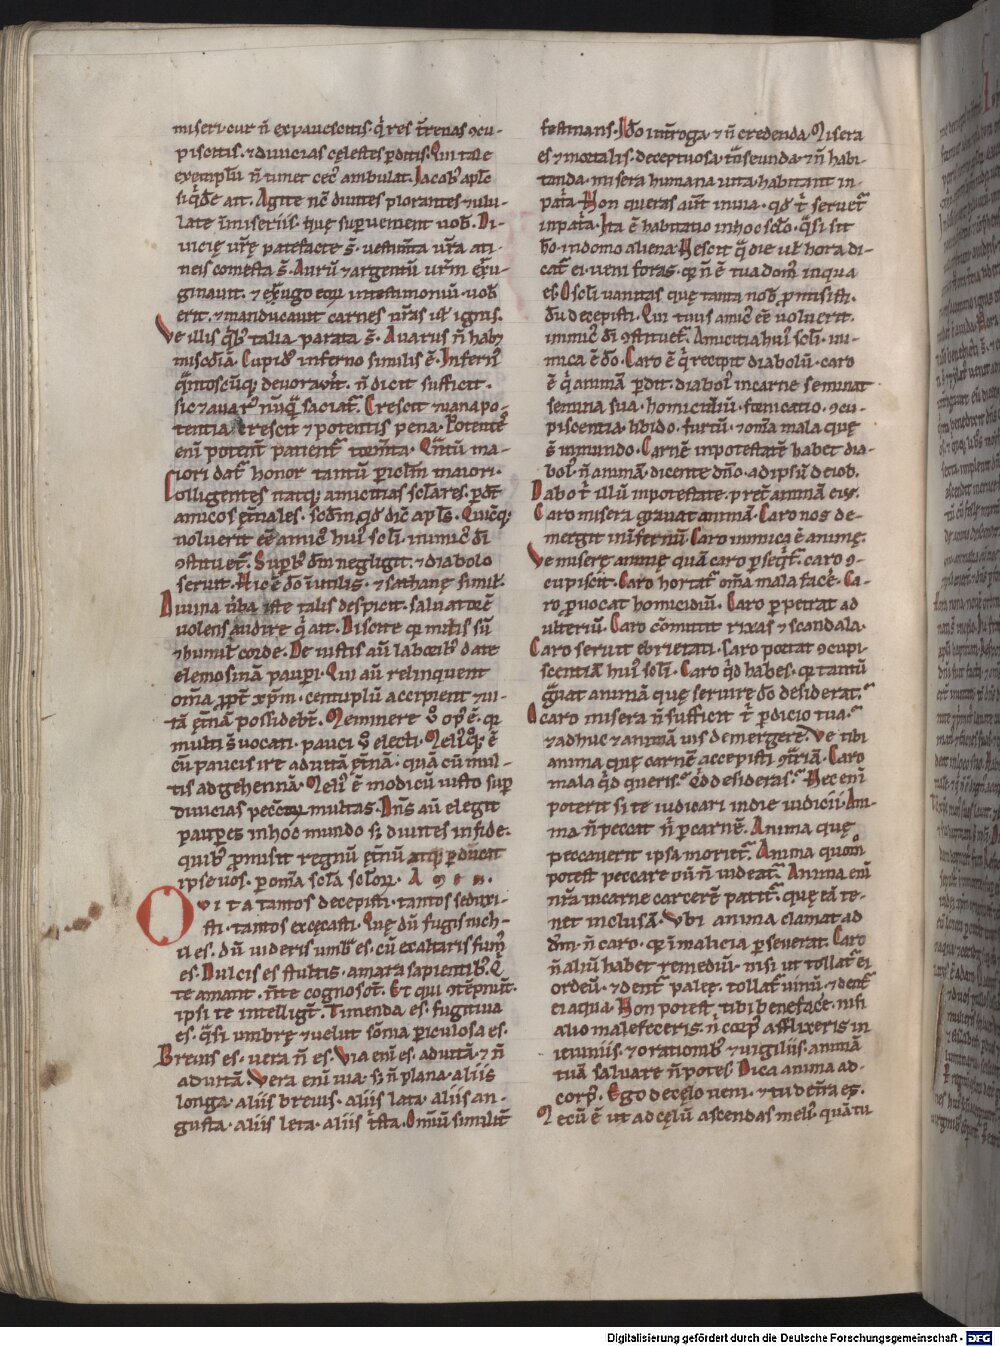 miseri cur ñ expauescitis · q̇ res t̃renas ꝯcu-
piscitis · ⁊ diuicias cęlestes ꝑditis · Qui tale
exemplũ ñ timet cec᷒ ambulat · Iacob᷒ apl̃s
siq̇dẽ ait · Agite nc̃ diuites plorantes ⁊ ulu-
late ĩ miseriis · quę suꝑuenient uob̃ · Di-
uicię ur̃ę patefacte s̃ · uestim̃ta ur̃a a ti-
neis comesta s̃ · Aurũ ⁊ argentũ ur̃m er̃u-
ginauit · ⁊ er̃ugo eoꝝ in testimoniũ uob̃
erit · ⁊ manducauit carnes ur̃as ul̃ ignis ·
Ve illis q̇b᷒ talia parata s̃ · Auarus ñ habꝫ
misc̃diã · Cupid᷒ inferno similis ẽ · Infern᷒
q̃ntoscũqꝫ deuorau̾it · ñ dicit sufficit ·
sic ⁊ auar᷒ nũq̃ saciat̃ · Crescit ⁊ uana po-
tentia · crescit ⁊ potentis pena · Potente᷒
enĩ potent̃ patient̃ torm̃ta · Qñtũ ma-
iori dat̃ honor tantũ ꝑiclm̃ maiori ·
Colligentes itaqꝫ amicitias sc̃lares · ꝑdt̃
amicos et̃nales · scd̃m qd̾ dic̃ apl̃s · Quicũqꝫ
uoluerit eẽ amic᷒ hui᷒ scl̃i · inimic᷒ dĩ
ꝯstituet̃ · Suꝑb᷒ dm̃ negligit · ⁊ diabolo
seruit · Hic ẽ dõ ĩutilis · ⁊ sathanę simil̃ ·
Diuina ũba iste talis despicit · saluatorẽ
nolens audire q̇ ait · Discite q̃ mitis sũ
⁊ humil᷒ corde · De iustis aũ laborib᷒ date
elemosinã pauꝑi · Qui aũ relinquent
om̃ia ꝓpt̃ xp̃m · centuplũ accipient ⁊ ui-
tã et̃nã possidebt̃ · Meminere ů op᷒ ẽ · q̃
multi s̃ uocati · pauci ů electi · Meli᷒qꝫ ẽ
cũ paucis ire ad uitã et̃nã · quã cũ mul-
tis ad gehennã · Meli᷒ ẽ modicũ iusto suꝑ
diuicias pecc̃toꝝ multas · Dñs aũ elegit
pauperes in hoc mundo sꝫ diuites in fide ·
quib᷒ ꝓmisit regnũ et̃nũ atqꝫ ꝑducit
ipse uos · ꝑ om̃ia scl̃a scl̃oꝝ · A m e n ·
O VITA tantos decepisti · tantos seduxi-
sti · tantos excęcasti · Quę dũ fugis nich-
il es · dũ uideris umb᷒ es · cũ exaltaris fum᷒
es · Dulcis es stultis · amara sapientib᷒ · Q̇
te amant · ñ te cognosct̃ · Et qui ꝯtẽpnũt ·
ipsi te intelligt̃ · Timenda es · fugitiua
es · q̃si umbrę ⁊ uelut sõnia ꝑiculosa es ·
Breuis es · uera ñ es · Via enĩ es ad uitã ⁊ ñ
ad uitã · Vera enĩ uia · sꝫ ñ plana · aliis
longa · aliis breuis · aliis lata · aliis an-
gusta · aliis leta · aliis t̾sta · Omniũ similit̃
festinans · Ido int̃roga ⁊ ñ credenda · Misera
es ⁊ mortalis · deceptuosa · t̃nseunda · ⁊ ñ habi-
tanda · misera humana uita · habitant in-
pat̾a · Non queras aliꝗt in uia · qd̾ t̃ seruet̃
in pat̾a · Ita ẽ habitatio in hoc scl̃o · q̃si sit
hõ · in domo aliena · Nescit q̃ die ul̃ hora di-
cat̃ ei · ueni foras · q̃ ñ ẽ tua dom᷒ in qua
es · O scl̃i uanitas quę tanta nob̃ ꝓmisisti ·
dũ decepisti · Qui tuus amic᷒ eẽ uoluerit ·
inimic᷒ dĩ ꝯstituet̃ · Amicitia hui᷒ scl̃i · ini-
mica ẽ dõ · Caro ẽ q̇ recipit diabolũ · caro
ẽ q̇ animã ꝑdit · diabol᷒ in carne seminat
semina sua · homicidiũ · fornicatio · ꝯcu-
piscentia · libido · furtũ · ⁊ om̃ia mala quę
s̃ in mundo · Carnẽ in potestatẽ habet dia-
bol᷒ ñ animã · dicente dño · ad ipsũ de iob ·
Dabo t̃ illũ in potestate · pret̃ animã ei᷒ ·
Caro misera grauat animã · Caro nos de-
mergit in infernũ · Caro inimica ẽ animę ·
Ve misere animę quã caro ꝑseqt̃ · caro ꝯ-
cupiscit · Caro hortat̃ om̃ia mala facẽ · Ca-
ro ꝓuocat homicidiũ · Caro ꝑpetrat ad
ulteriũ · Caro cõmittit rixas ⁊ scandala ·
Caro seruit ebrietati · Caro portat ꝯcupi-
scentiã hui᷒ scl̃i · Caro q̇d habes · q̃ tantũ
g̃uat animã quę seruire dõ desiderat ·
O caro misera ñ sufficit t̃ ꝑdicio tua ·
⁊ adhuc ⁊ animã uis demergere · Ve tibi
anima quę carnẽ accepisti ꝯt̃riã · Caro
mala q̇d queris · Q̇d desideras · Nec enĩ
poterit si te iudicari in die iudicii · Ani-
ma ñ peccat ñ ꝑ carnẽ · Anima quę
peccauerit ipsa moriet̃ · Anima quom̃o
potest peccare cũ ñ uideat̃ · Anima enĩ
nr̃a in carne carcerẽ patit̃ · quę eã te-
net inclusã · Vbi anima clamat ad
dm̃ · ñ caro · q̃ ĩ malicia ꝑseuerat · Caro
ñ aliũ habet remediũ · nisi ut tollat̃ ei
ordeũ · ⁊ dent̃ palee · tollat̃ uinũ · ⁊ det̃
ei aqua · Non potest tibi benefacẽ · nisi
alio malefeceris · ñ corp᷒ afflixeris in
ieiuniis · ⁊ orationib᷒ ⁊ uigiliis · animã
tuã saluare ñ potes · Dica anima ad
corp᷒ · Ego de cęlo ueni · ⁊ tu de t̃ra es ·
Mecũ ẽ ut ad cęlũ ascendas meli᷒ · quã tu
Digitalisierung gefördert durch die Deutsche Forschungsgemeinschaft - DFG